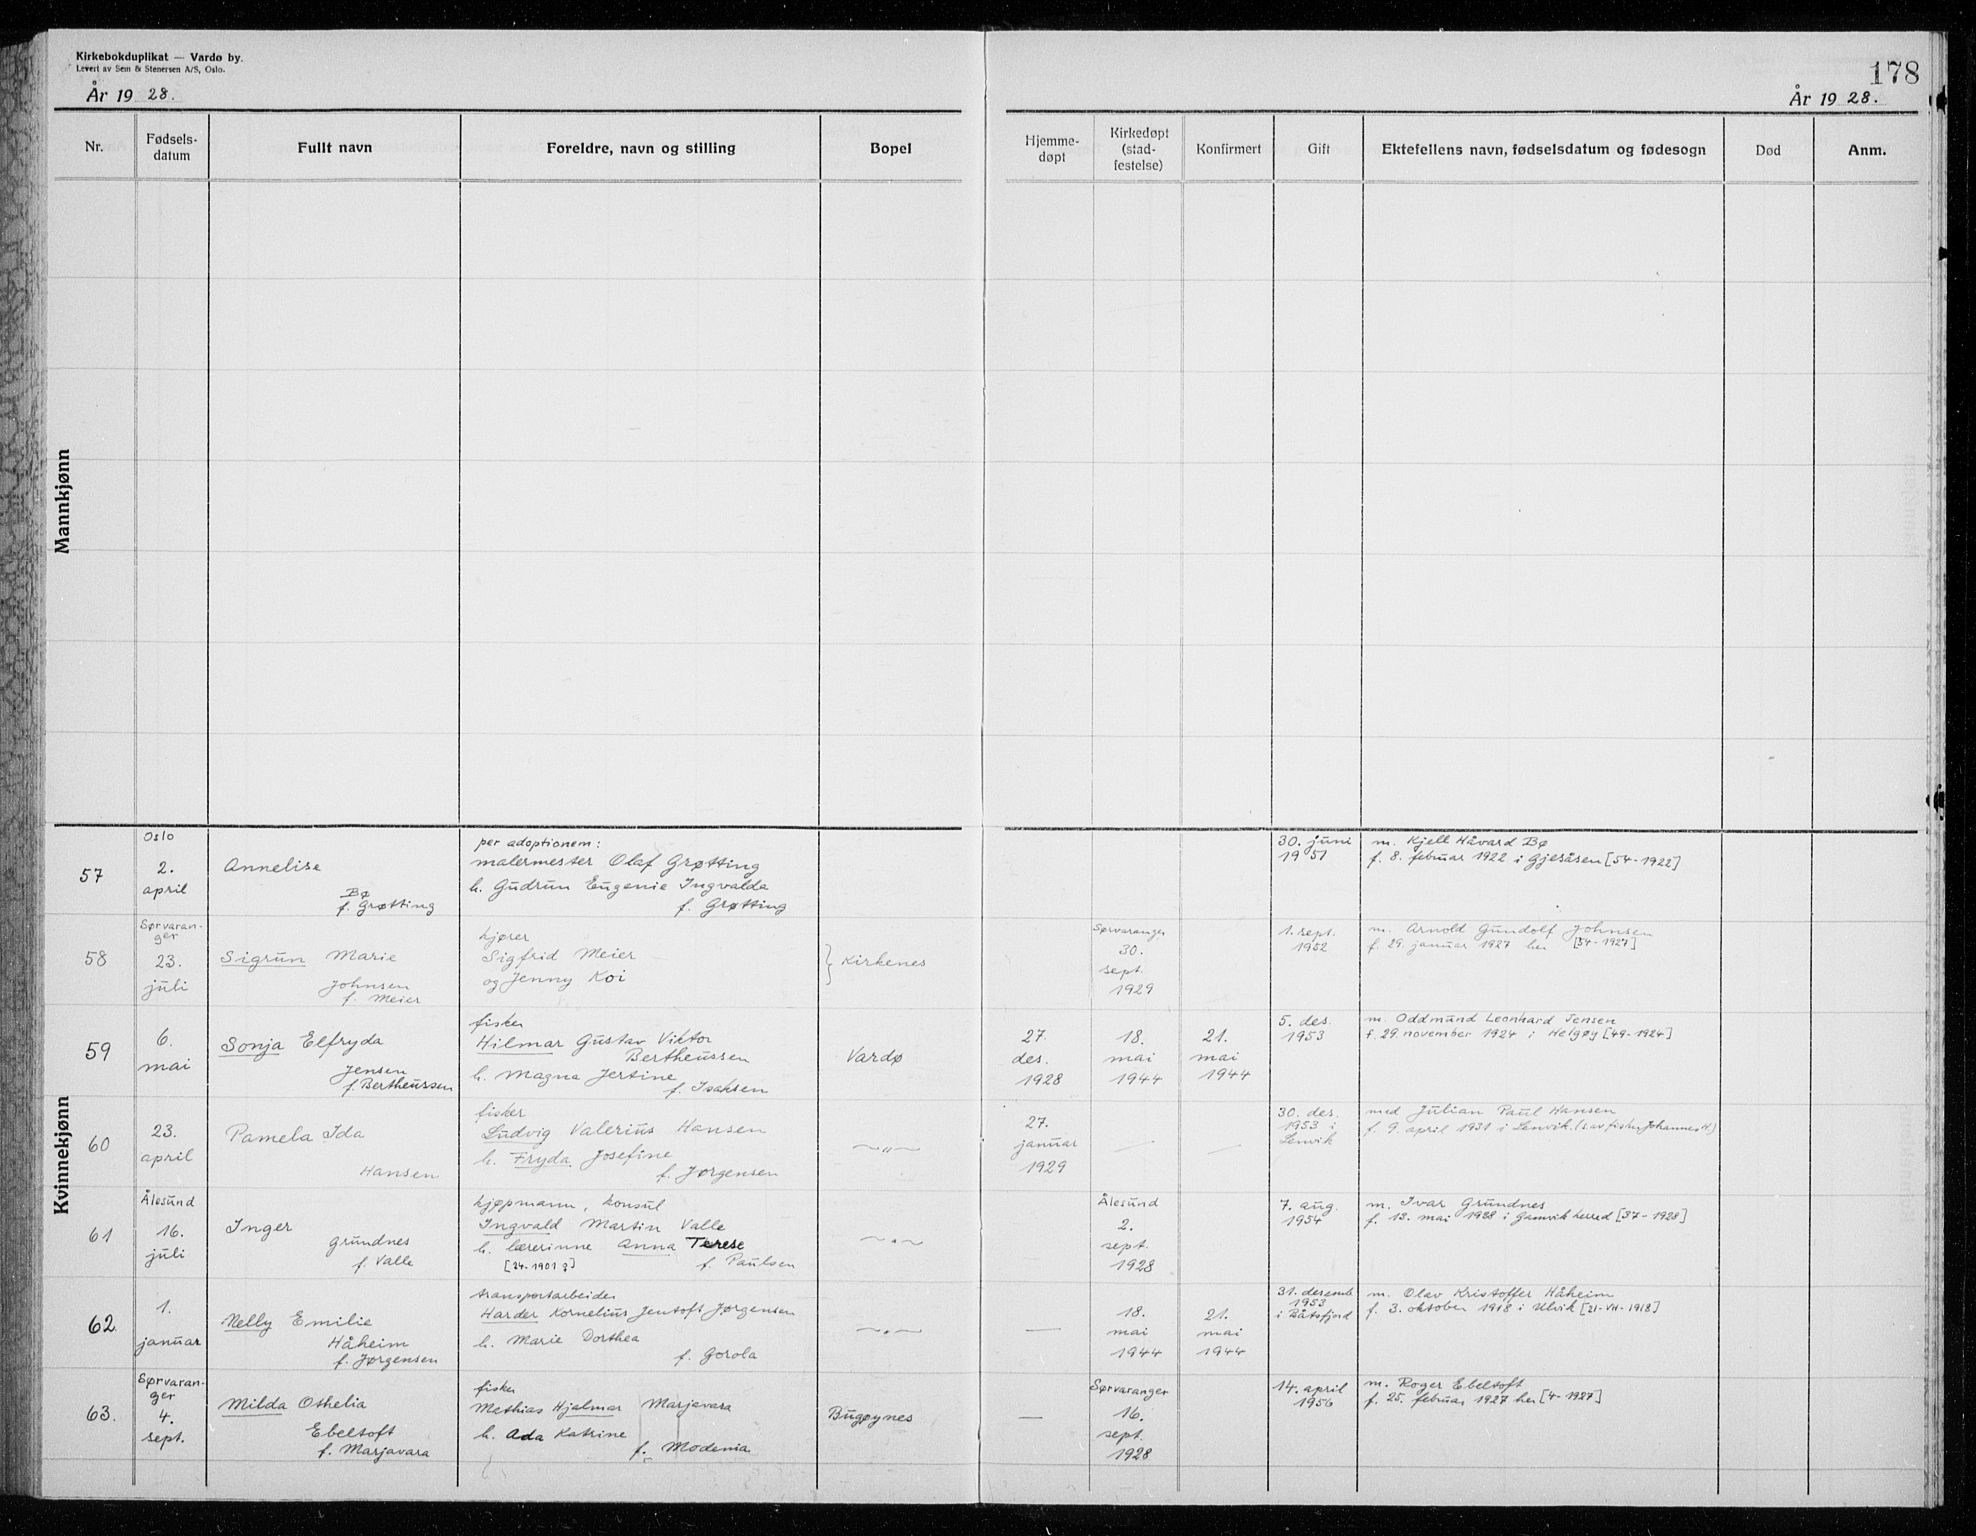 Kirkebokduplikat — Vardø by.
Levert av Sem & Stenersen A/S, Oslo.
År 19 28.
178
År 19 28.
Nr.
Fødsels-
datum
Fullt navn
Foreldre, navn og stilling
Bopel
Hjemme-
døpt
Kirkedøpt
(stad-
festelse)
Konfirmert
Gift
Ektefellens navn, fødselsdatum og fødesogn
Død
Anm.
Mannkjønn
Kvinnekjønn
57
Oslo
2.
april
Annelise
Bø
f. Grøtting
per adoptionem:
malermester Olaf Grøtting
h. Gudrun Eugenie Ingvalda
f. Grøtting
30. juni
1951
m. Kjell Håvard Bø
f. 8. februar 1922 i Gjesåsen [54-1922]
58
Sørvaran-
ger
23.
juli
Sigrun Marie
Johnsen
f. Meier
kjører
Sigfrid Meier
og Jenny Koi
} Kirkenes
Sørvaranger
30.
sept.
1929
1. sept.
1952
m. Arnold Gundolf Johnsen
f. 29. januar 1927 her [54-1927]
59
6.
mai
Sonja Elfryda
Jensen
f. Bertheussen
fisker
Hilmar Gustav Viktor
Bertheussen
h. Magna Jertine
f. Isaksen
Vardø
27.
des.
1928
18.
mai
1944
21.
mai
1944
5. des.
1953
m. Oddmund Leonhard Jensen
f. 29. november 1924 i Helgøy [49-1924]
60
23.
april
Pamela Ida
Hansen
fisker
Ludvig Valerius Hansen
h. Fryda Josefine
f. Jørgensen
—"—
27.
januar
1929
—
—
30. des.
1953 i
Lenvik
med Julian Paul Hansen
f. 9. april 1931 i Lenvik. (s. av fisker Johannes H.)
61
Ålesund
16.
juli
Inger
Grundnes
f. Valle
kjøpmann, konsul
Ingvald Martin Valle
h. lærerinne Anna Terese
[24-1901 ♀]
f. Paulsen
—"—
Ålesund
2.
sept.
1928
7. aug.
1954
m. Ivar Grundnes
f. 12. mai 1928 i Gamvik herred [37-1928]
62.
1.
januar
Nelly Emilie
Håheim
f. Jørgensen
transportarbeider
Harder Kornelius Jentoft Jørgensen
h. Marie Dorthea
f. Gorola
—"—
—
18.
mai
1944
21.
mai
1944
31. desemb.
1953
i Båtsfjord
m. Olav Kristoffer Håheim
f. 3. oktober 1918 i Ulvik [21-VII-1918]
63.
Sørvaran-
ger
4.
sept.
Milda Othelia
Ebeltoft
f. Marjavara
fisker
Mathias Hjalmar Marjavara
h. Ada Katrine
f. Modenia
Bugøynes
—
Sørvaranger
16.
sept.
1928
14. april
1956
m. Roger Ebeltoft
f. 25. februar 1927 her [4-1927]